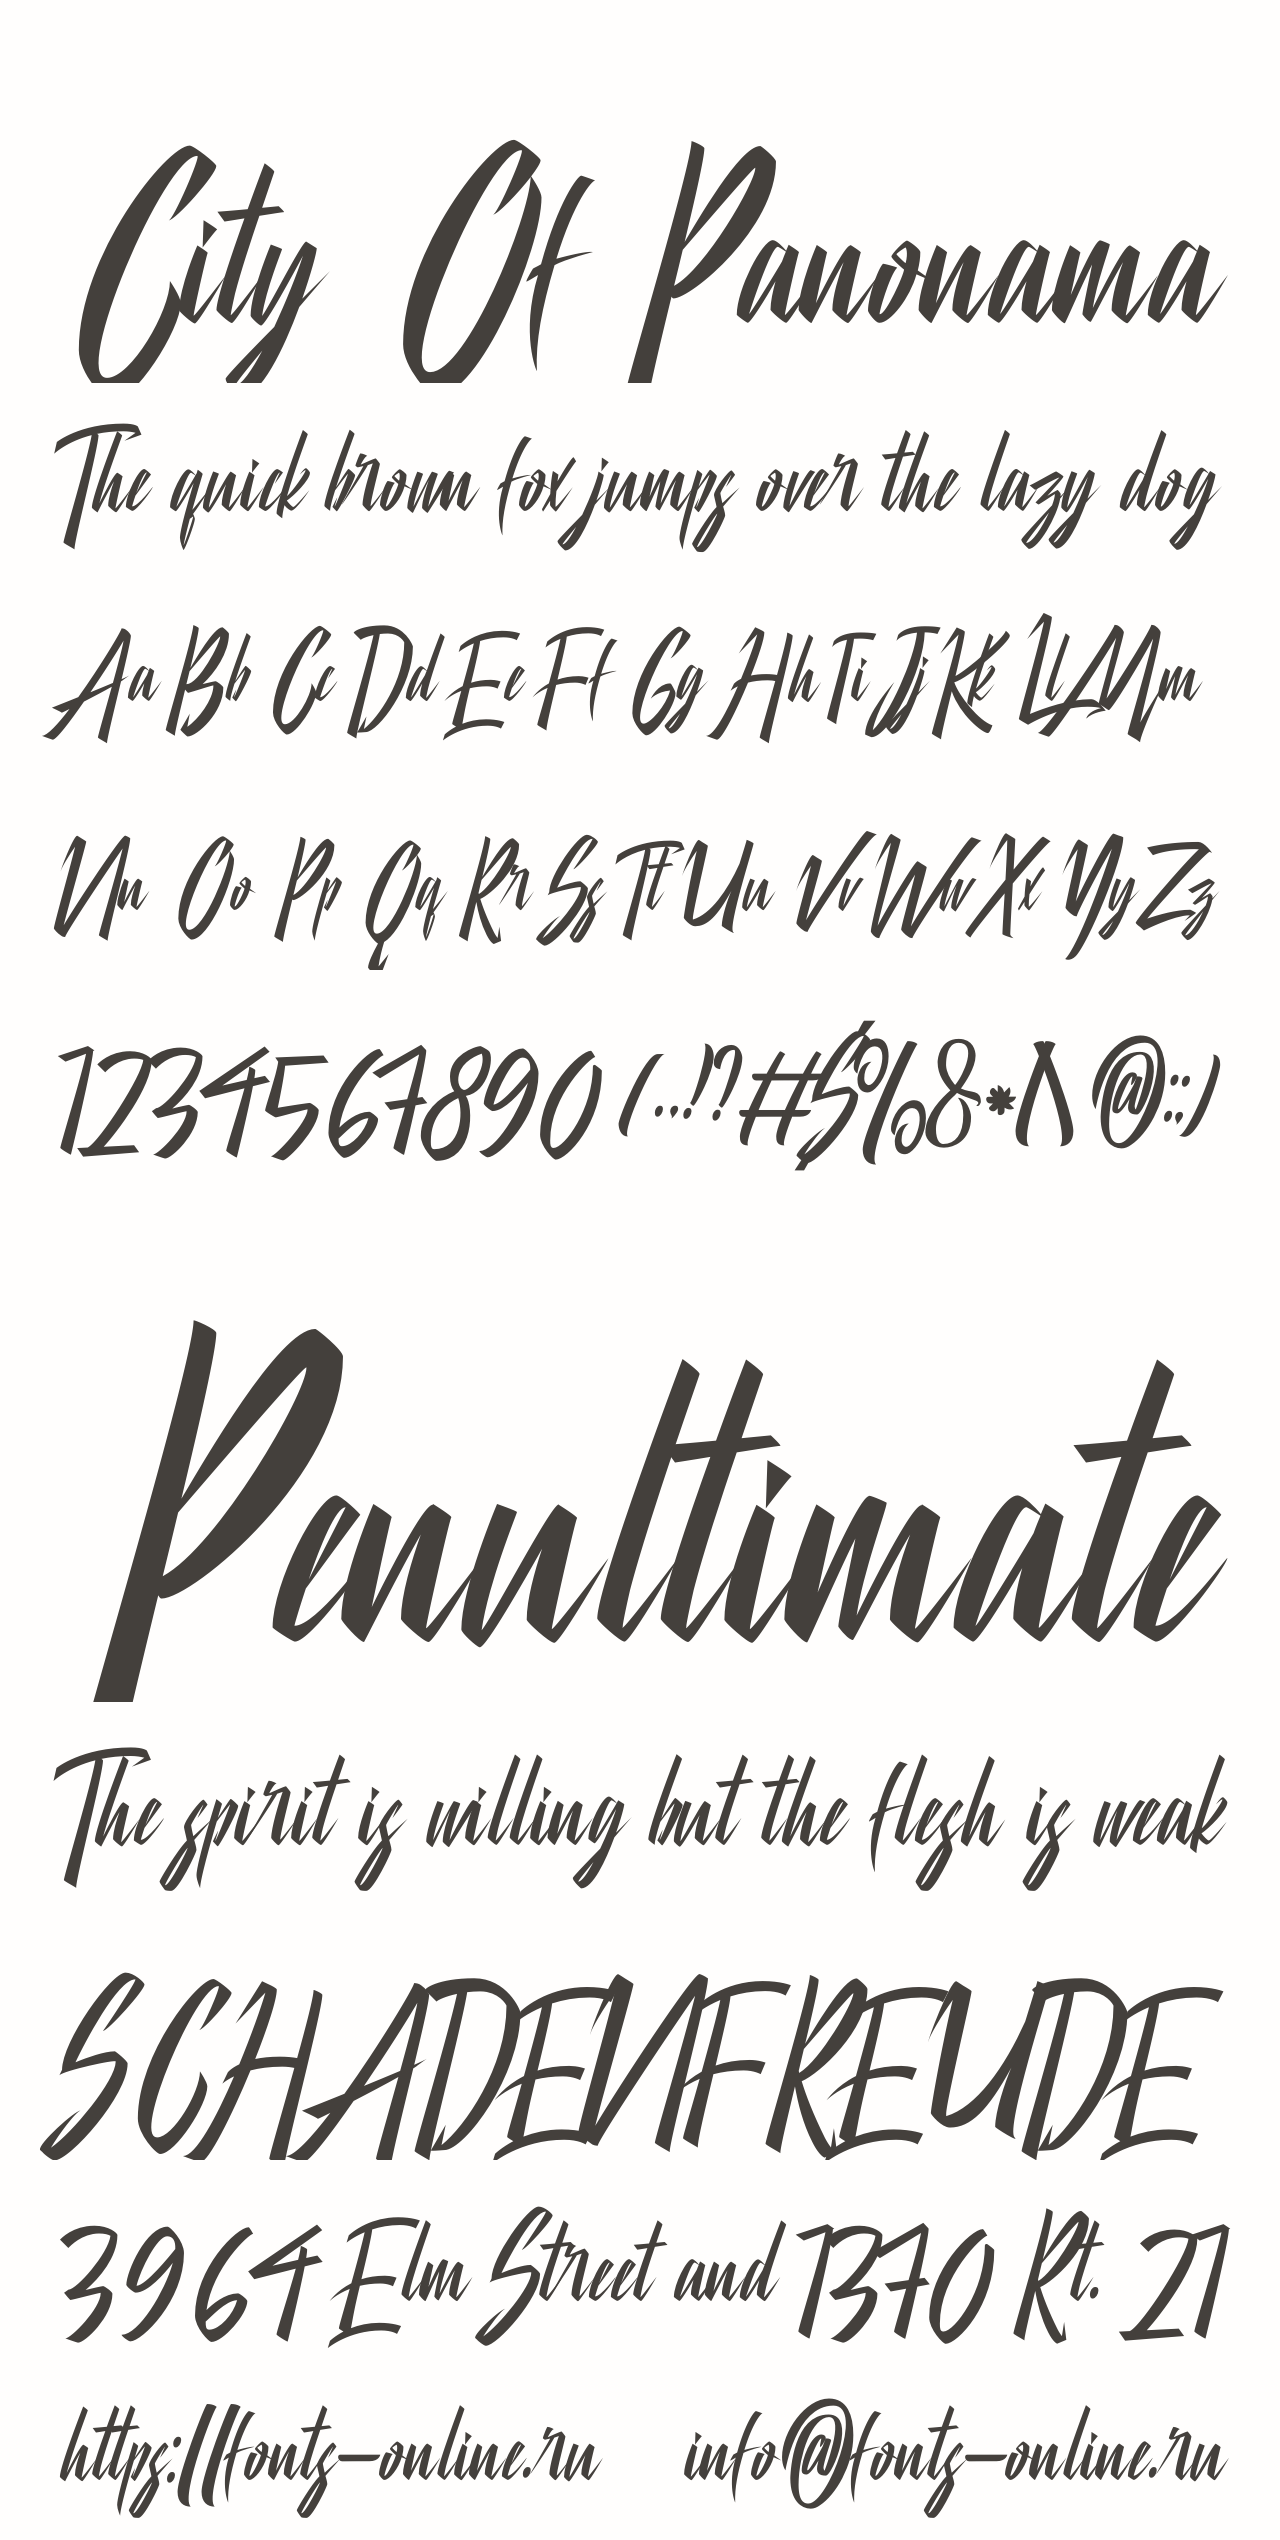 City Of Panonama
The quick brown fox jumps over the lazy dog
Aa Bb Cc Dd Ee Ff Gg Hh Ii Jj Kk Ll Mm
Nn Oo Pp Qq Rr Ss Tt Uu Vv Ww Xx Yy Zz
1234567890 (.,!?#$%&*^@:;)
Penultimate
The spirit is willing but the flesh is weak
SCHADENFREUDE
3964 Elm Street and 1370 Rt. 21
https://fonts-online.ru info@fonts-online.ru